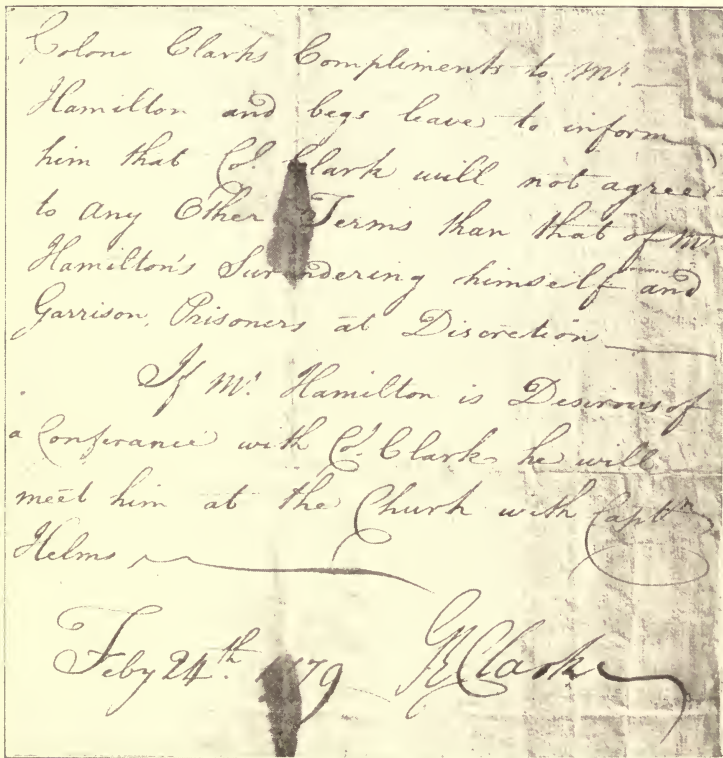 Colone Clarks Compliments to Mr.
Hamilton and begs leave to inform
him that Co!. Clark will not agree
to any Other Terms than that of Mr.
Hamilton's Surendering himself and
Garrison, Prisoners at Discretion
If Mr. Hamilton is Desirous of
a Conferance with Col. Clark he will
meet him at the Church with Captn.
Helms
Feby 24th. 1779 GR Clark